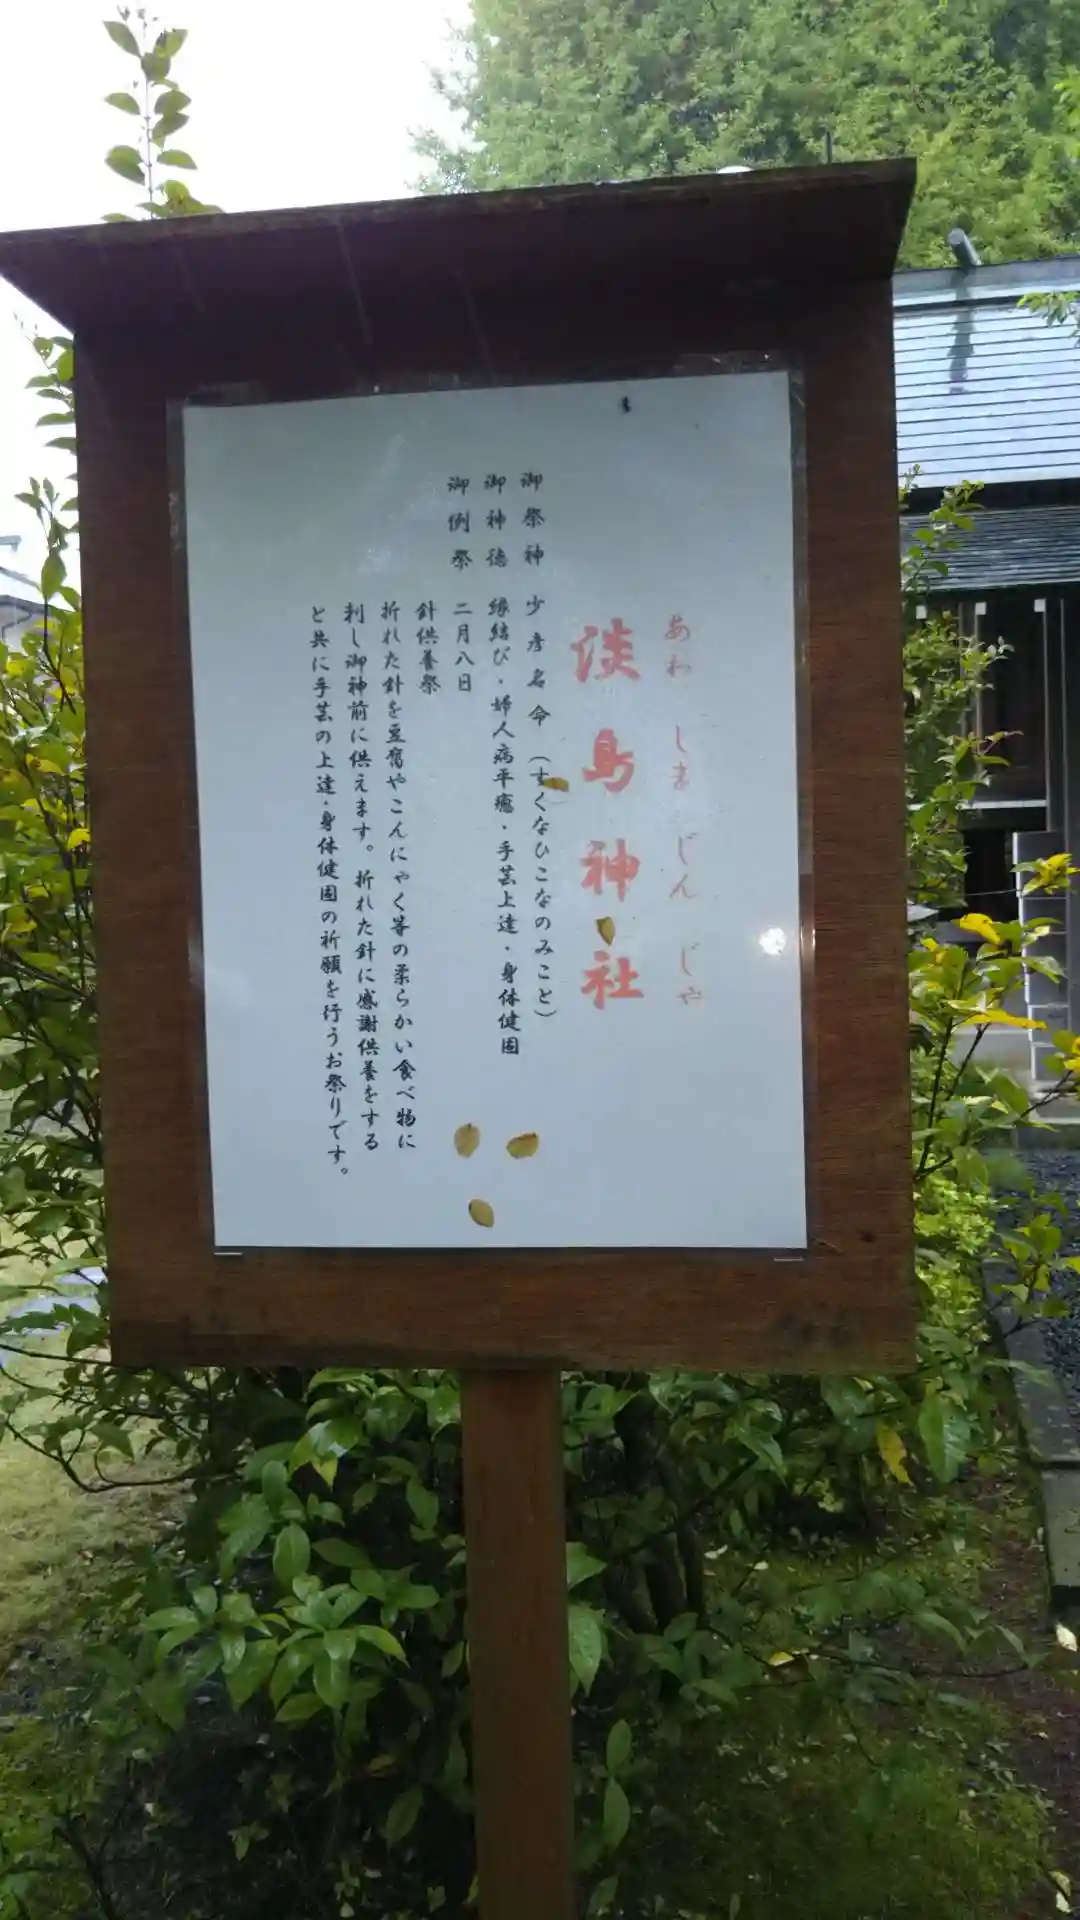 あわしまじんじゃ
淡島神社
御祭神 少彦名命(すくなひこなのみこと)
御神徳 縁結び・婦人病平癒・手芸上達・身体健固
御例祭 二月八日
針供養祭
折れた針を豆腐やこんにゃく等の柔らかい食べ物に
刺し御神前に供えます。折れた針に感謝供養をする
と共に手芸の上達・身体健固の祈願を行うお祭りです。